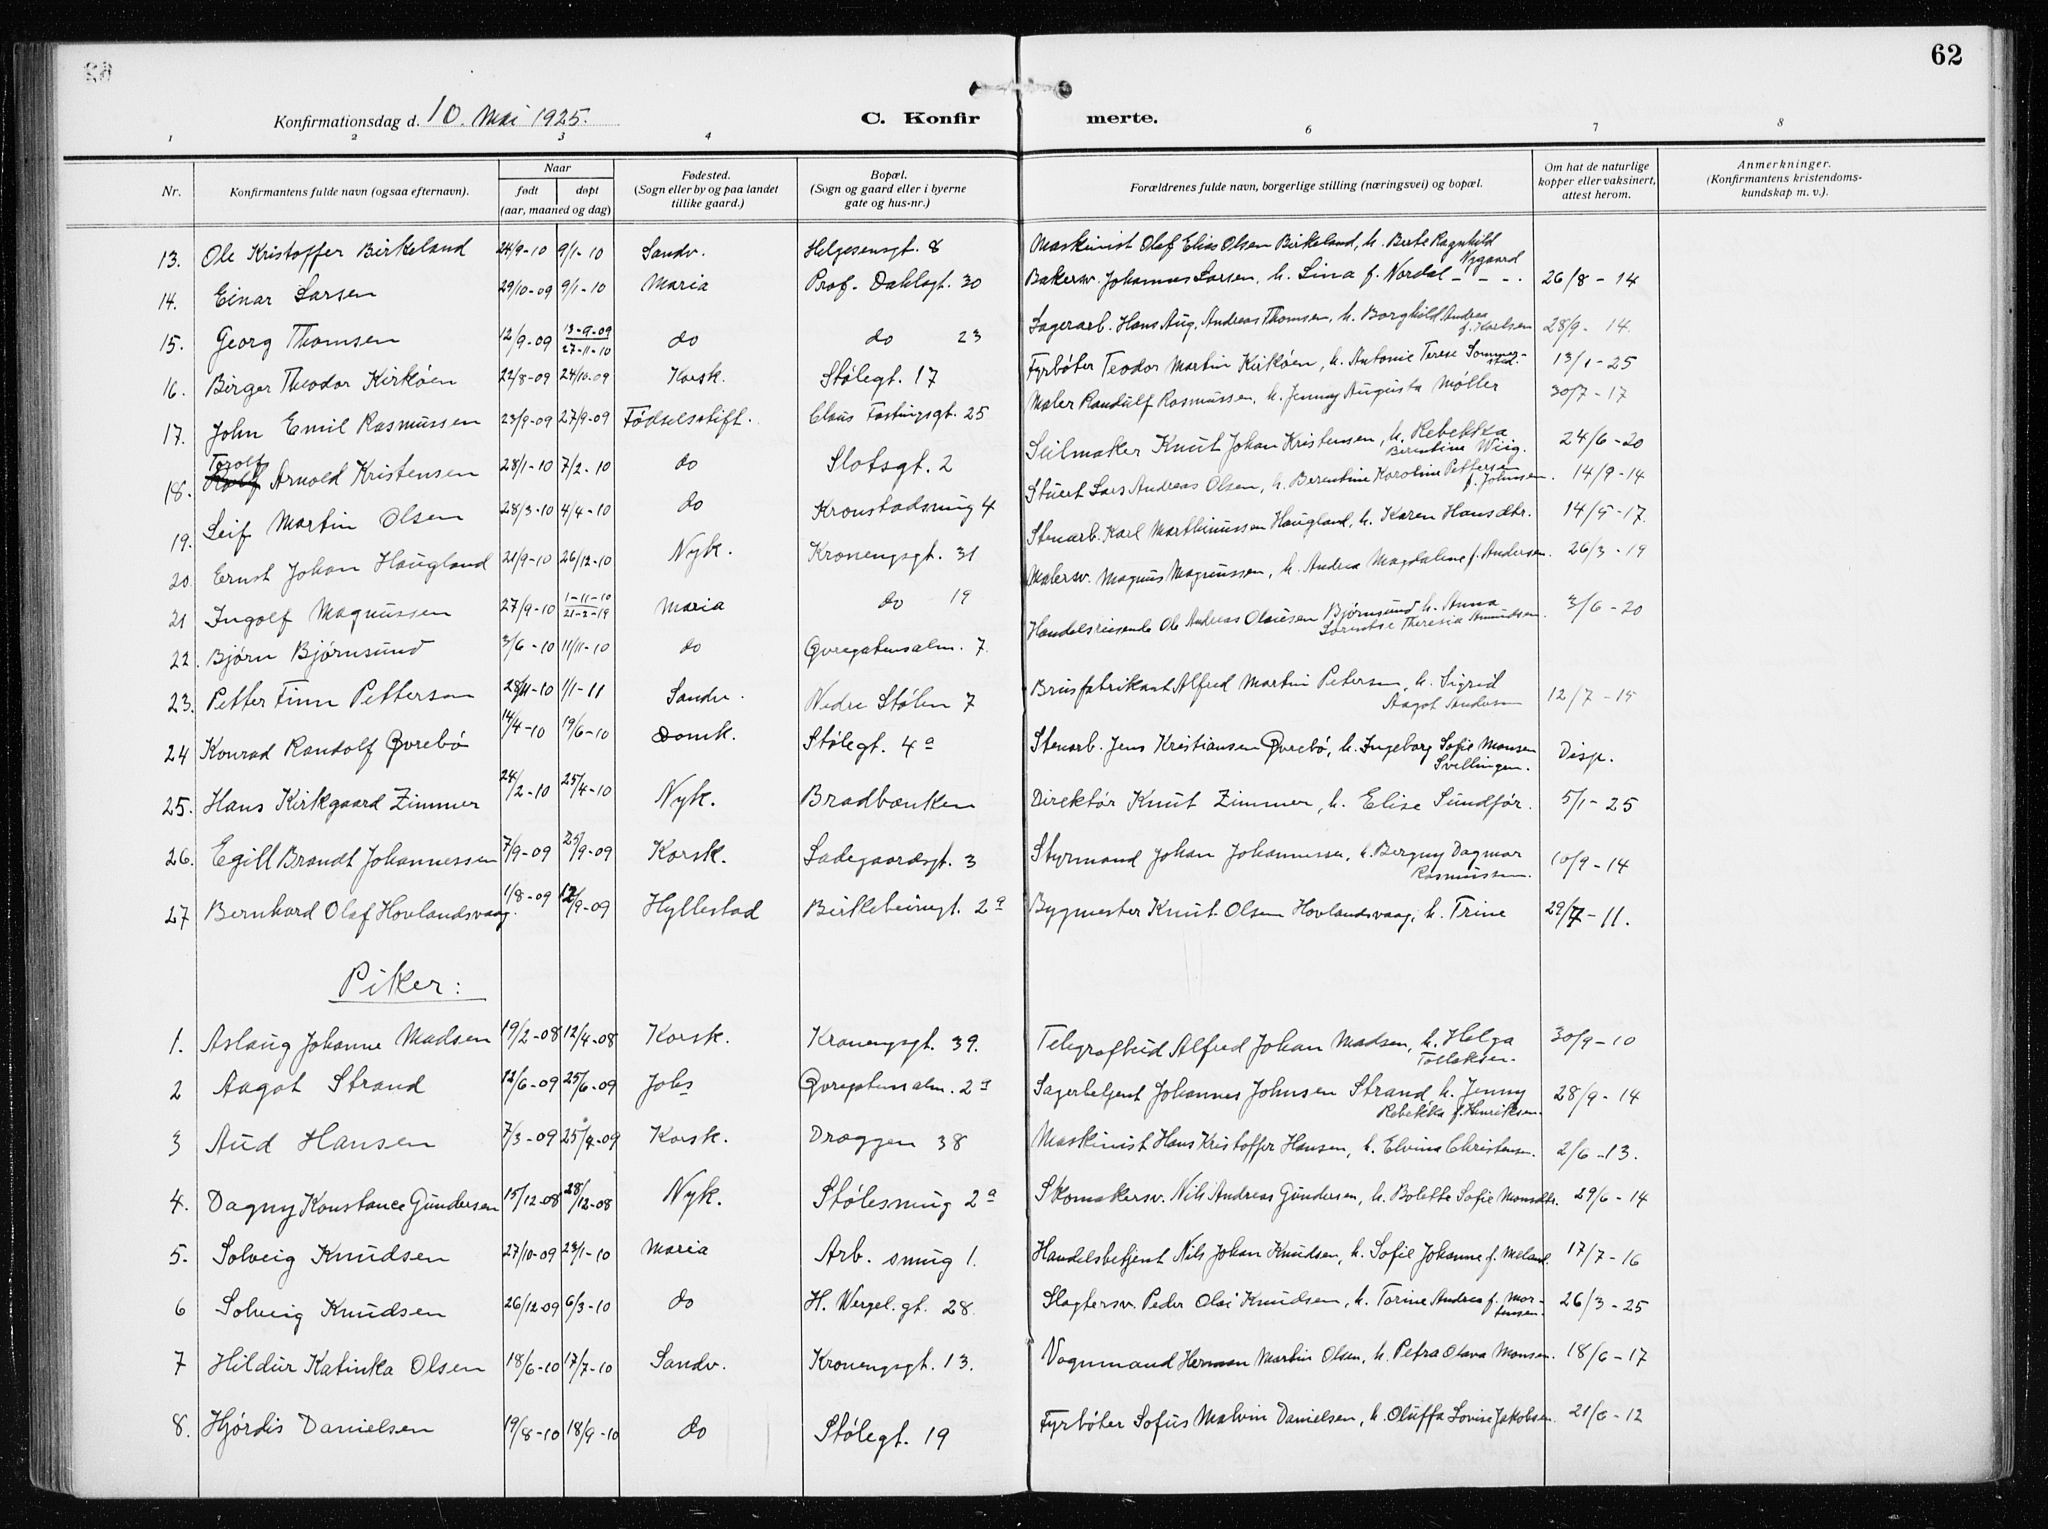 62
Konfirmationsdag d. 10. Mai 1925.
C. Konfir merte.
1 2 3 4 6 7 8
Nr.
Konfirmantens fulde navn (ogsaa efternavn).
Naar
født døpt
(aar, maaned og dag)
Fødested.
(Sogn eller by og paa landet
tillike gaard.)
Bopæl.
(Sogn og gaard eller i byerne
gate og hus-nr.)
Forældrenes fulde navn, borgerlige stilling (næringsvei) og bopæl.
Om hat de naturlige
kopper eller vaksinert,
attest herom.
Anmerkninger.
(Konfirmantens kristendoms-
kundskap m. v.).
13. Ole Kristoffer Birkeland 24/9-10 9/1-10 Sandv. Helgesensgt. 8 Maskinist Olaf Elias Olsen Birkeland, h. Berte Ragnhild
Nygaard
14. Einar Larsen 29/10-09 9/1-10 Maria Prof. Dahlsgt. 30 Bakersv. Johannes Larsen, h. Lina f. Nordal - - - . 26/8-14
15. Georg Thomsen 12/9-09 13-9-09 do do 23 Lagerarb. Hans Aug. Andreas Thomsen, h. Borghild Andrea
27-11-10 f. Karlsen 28/9-14.
16. Birger Theodor Kirkøen 22/8-09 24/10-09 Korsk. Stølegt. 17 Fyrbøter Teodor Martin Kirkøen, h. Antonie Terese Sommer-
sted. 13/1-25
17. John Emil Rasmussen 23/9-09 27/9-09 Fødselsstift. Claus Fastingsgt. 25 Maler Randulf Rasmussen, h. Jenny Augusta Møller 30/7-17
Torolf
18. Rolf Arnold Kristensen 28/1-10 7/2-10 do Slotsgt. 2 Seilmaker Knut Johan Kristensen, h. Rebekka
Berentine Wiig. 24/6-20
19. Leif Martin Olsen 28/3-10 4/4-10 do Kronstadsmug 4 Stuert Lars Andreas Olsen, h. Berentine Karoline Pettersen
f. Johnsen. 14/9-14
20 Ernst Johan Haugland 21/9-10 26/12-10 Nyk. Kronengsgt. 31 Stenarb. Karl Marthinussen Haugland, h. Karen Hansdtr. 14/5-17.
21 Ingolf Magnussen 27/9-10 1-11-10 Maria do 19 Malersv. Magnus Magnussen, h. Andrea Magdalene f. Andersen. 26/3-19
21-2-19
22. Bjørn Bjørnsund 3/6-10 11/11-10 do Øvregatensalm. 7. Handelsreisende Ole Andreas Olausen Bjørnsund h. Anna
Lorentse Theresia Amundsen. 3/6-20
23. Petter Finn Petterson 28/11-10 1/1-11 Sandv. Nedre Stølen 7 Brusfabrikant Alfred Martin Petersen, h. Sigrid
Aagot Andersen 12/7-15
24 Konrad Randolf Øvrebø 14/4-10 19/6-10 Domk. Stølegt. 4a Stenarb. Jens Kristiansen Øvrebø, h. Ingeborg Sofie Monsen
Svellingen. Disp.
25. Hans Kirkgaard Zimmer 24/2-10 25/4-10 Nyk. Bradbænken Direktør Knut Zimmer, h. Elise Sundfør. 5/1-25
26. Egill Brandt Johannessen 7/9-09 25/9-09 Korsk. Ladegaardsgt. 3 Styrmand Johan Johannessen, h. Bergny Dagmar
Rasmussen. 10/9-14
27 Bernhard Olaf Hovlandsvaag. 1/8-09 12/9-09 Hyllestad Birkebeinergt. 2a Bygmester Knut Olsen Hovlandsvaag, h. Trine 29/7-11.
Piker:
1. Aslaug Johanne Madsen 19/2-08 12/4-08 Korsk. Kronengsgt. 39. Telegrafbud Alfred Johan Madsen, h. Helga
Tollaksen. 30/9-10
2 Aagot Strand 12/6-09 25/6-09 Johs Øvregatensalm. 2a Lagerbetjent Johannes Johnsen Strand h. Jenny
Rebekka f. Henriksen. 28/9-14
3 Aud Hansen 7/3-09 25/4-09 Korsk. Dræggen 38 Maskinist Hans Kristoffer Hansen, h. Elvina Christensen. 2/6-13.
4. Dagny Konstance Gundersen 15/12-08 28/12-08 Nyk. Stølesmug 2a Skomakersv. Nils Andreas Gundersen, h. Bolette Sofie Monsdtr. 29/6-14
5. Solveig Knudsen 27/10-09 23/1-10 Maria Arb. smug 1. Handelsbetjent Nils Johan Knudsen, h. Sofie Johanne f. Meland. 17/7-16
6 Solveig Knudsen 26/12-09 6/3-10 do H. Wergel. gt. 28. Slagtersv. Peder Olai Knudsen, h. Torine Andrea f. Mor-
tensen. 26/3-25
7 Hildur Katinka Olsen 18/6-10 17/7-10 Sandv. Kronengsgt. 13. Vognmand Herman Martin Olsen, h. Petra Olava Monsen. 18/6-17
8. Hjørdis Danielsen 19/8-10 18/9-10 do Stølegt. 19 Fyrbøter Sofus Malvin Danielsen, h. Oluffa Lovise Jakobsen. 21/6-12